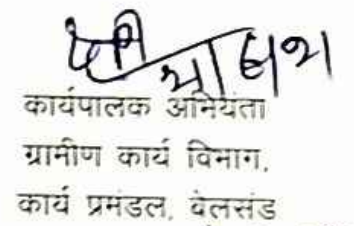 कार्यपालक अभियंता
ग्रामीण कार्य विभाग,
कार्य प्रमंडल, वेलसंड